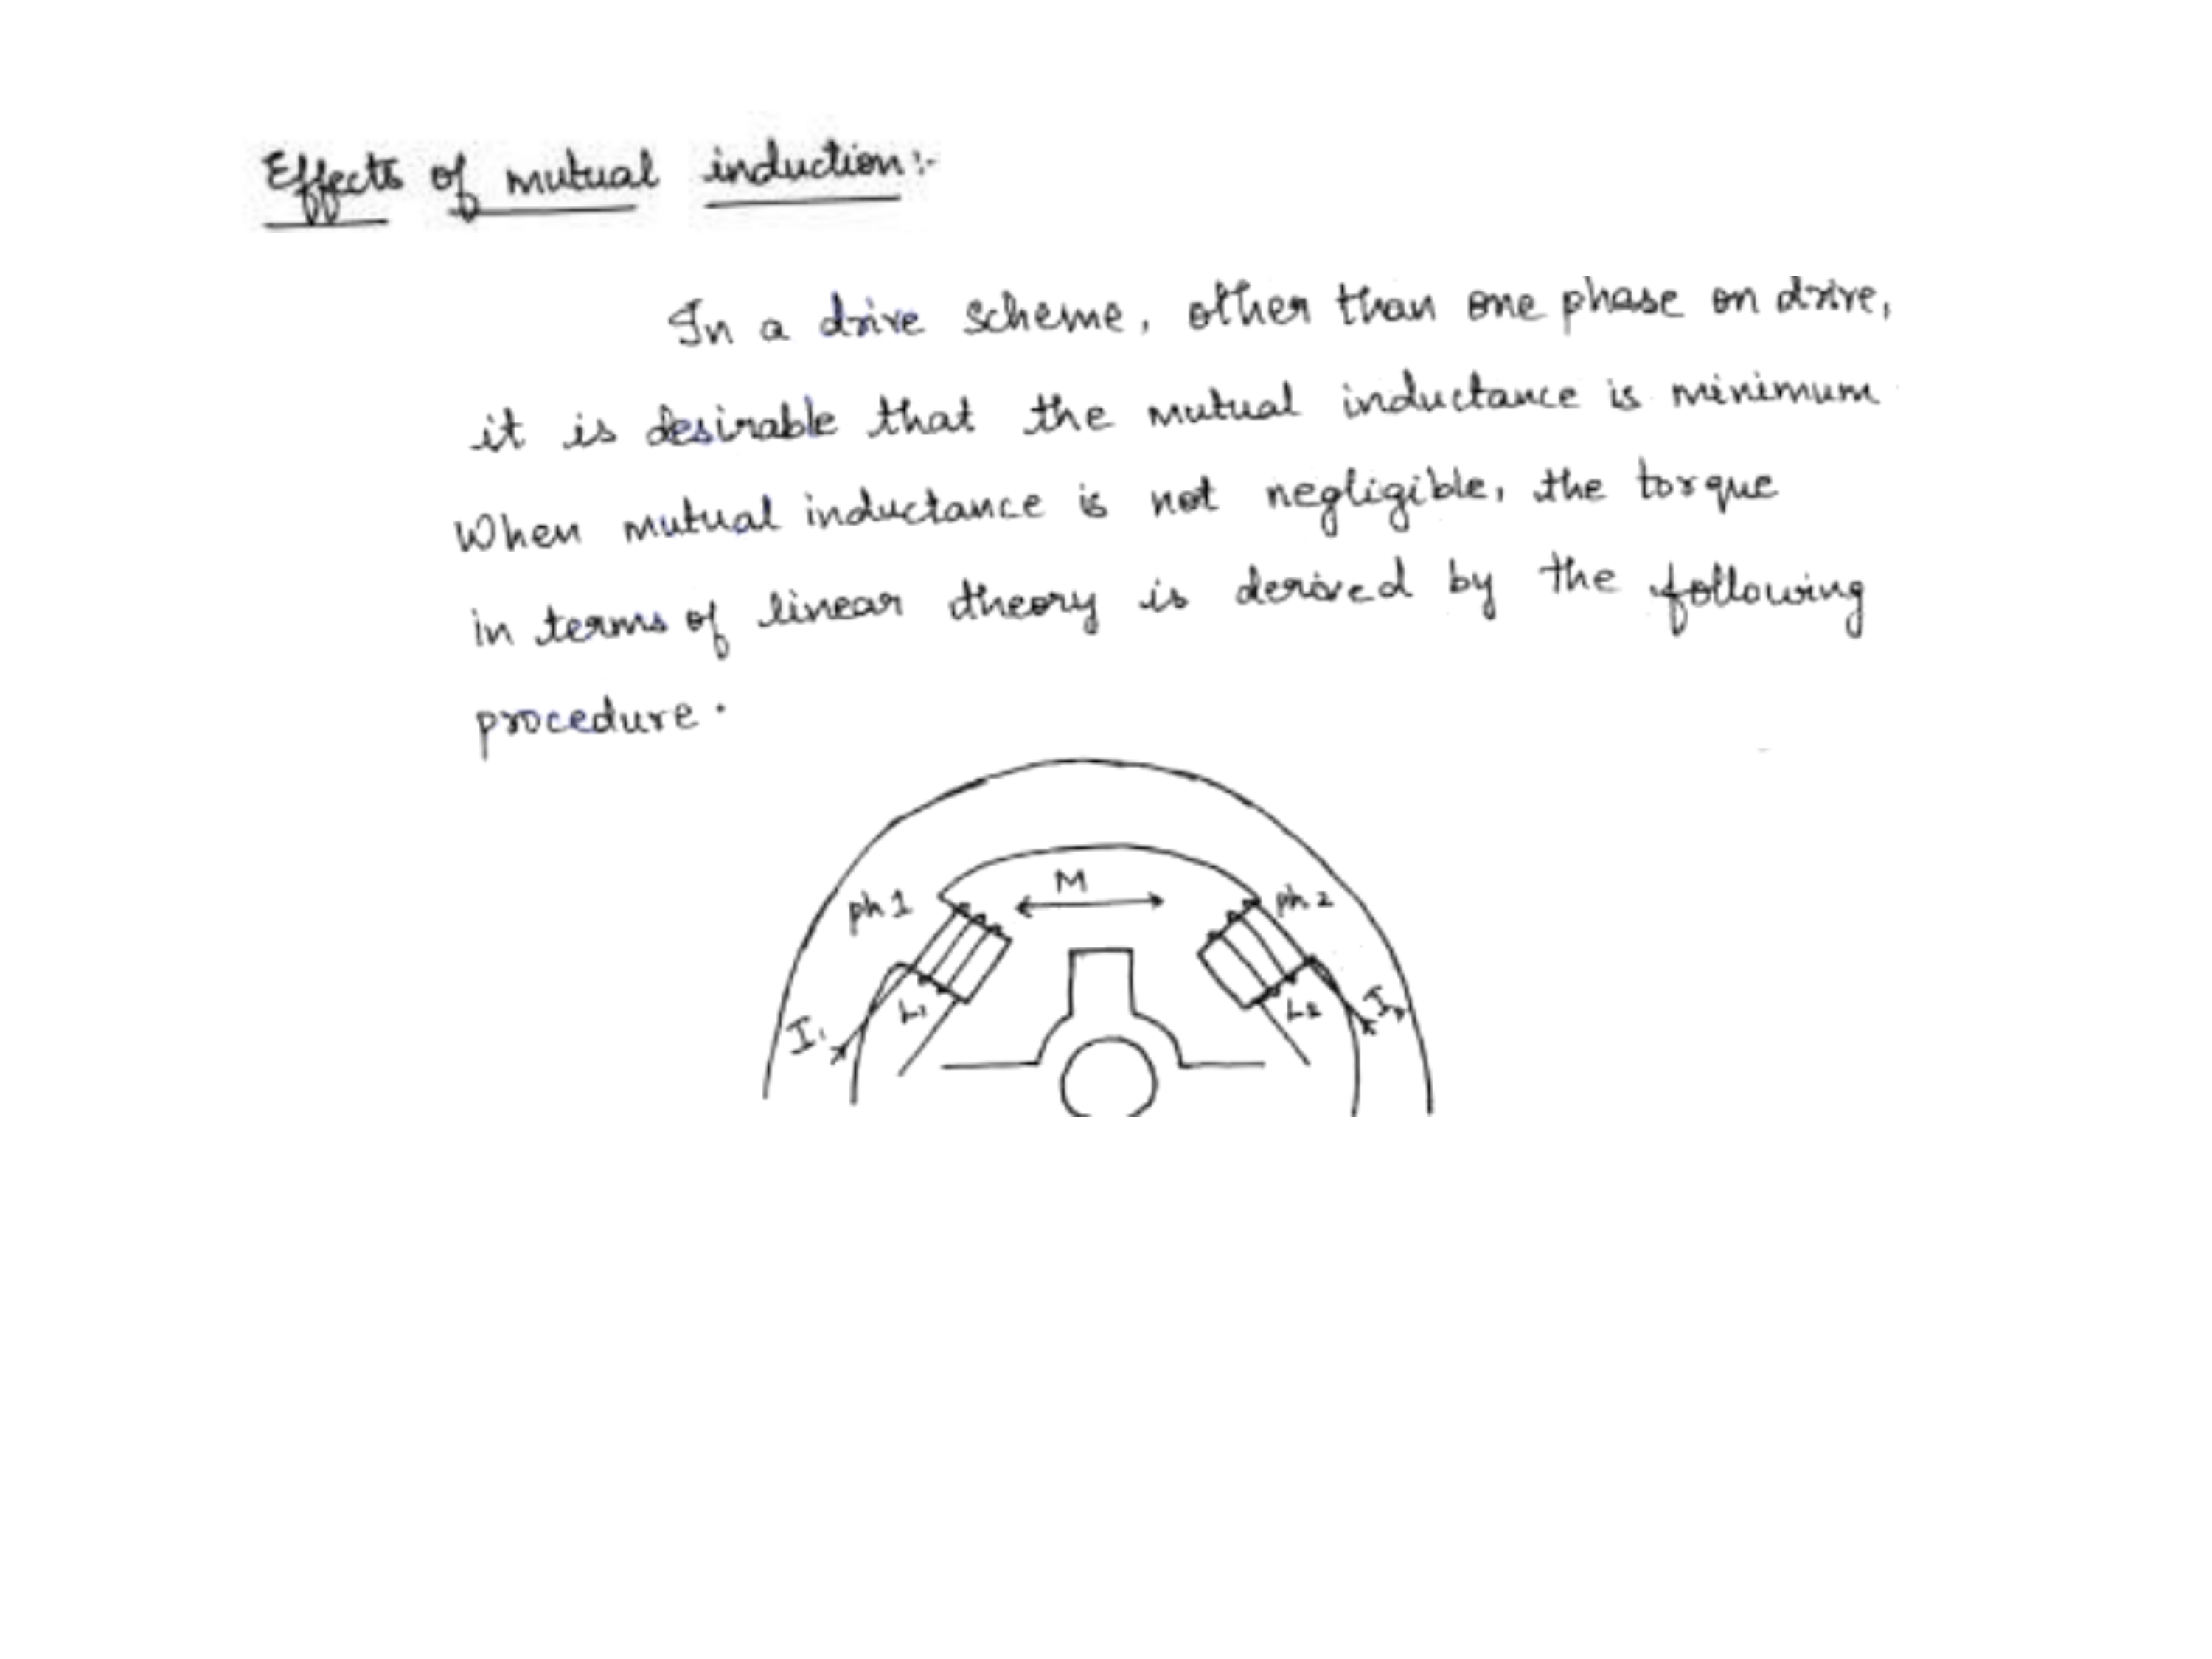 Effects of mutual induction:-
In a drive scheme, other than one phase on drive,
it is desirable that the mutual inductance is minimum
When mutual inductance is not negligible, the torque
in terms of linear theory is derived by the following
procedure.
M
ph 1
ph 2
L1
L2
I1
I2